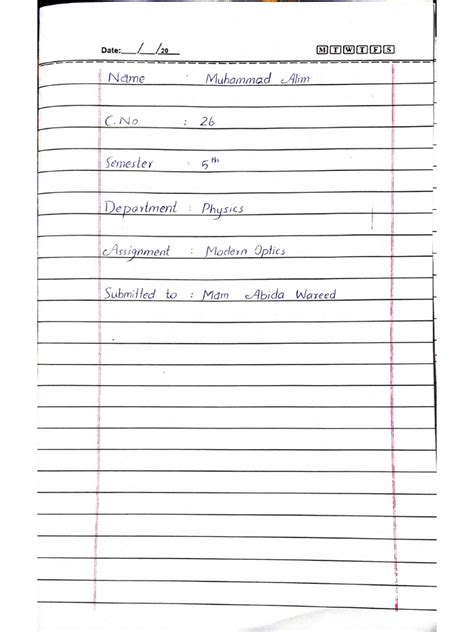 Date: / /20 M T W T F S
Name : Muhammad Alim
C.No : 26
Semester : 5th
Department : Physics
Assignment : Modern Optics
Submitted to : Mam Abida Wareed